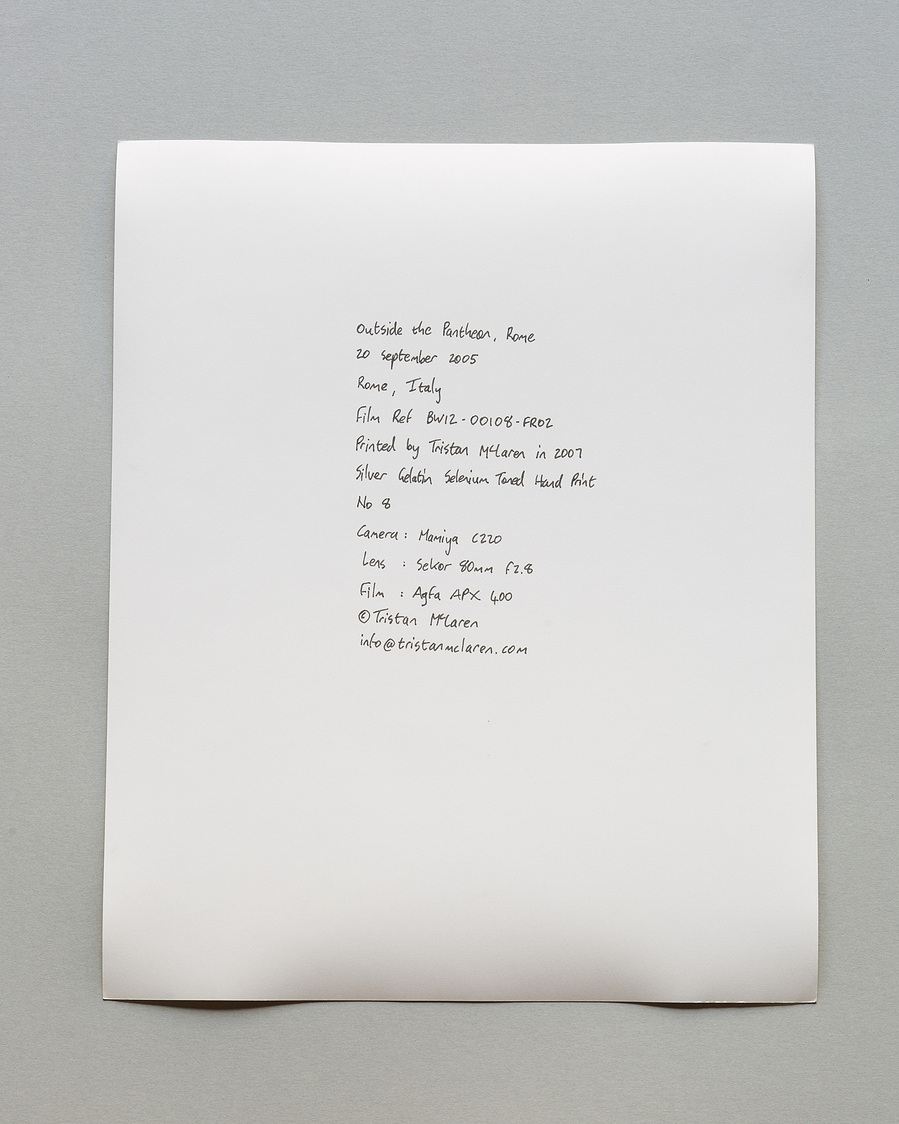 Outside the Pantheon, Rome
20 September 2005
Rome, Italy
Film Ref BW12-00108-FR02
Printed by Tristan McLaren in 2007
Silver Gelatin Selenium Toned Hand Print
No 8
Camera : Mamiya C220
Lens : Sekor 80mm f2.8
Film : Agfa APX 400
©Tristan McLaren
info@tristanmclaren.com